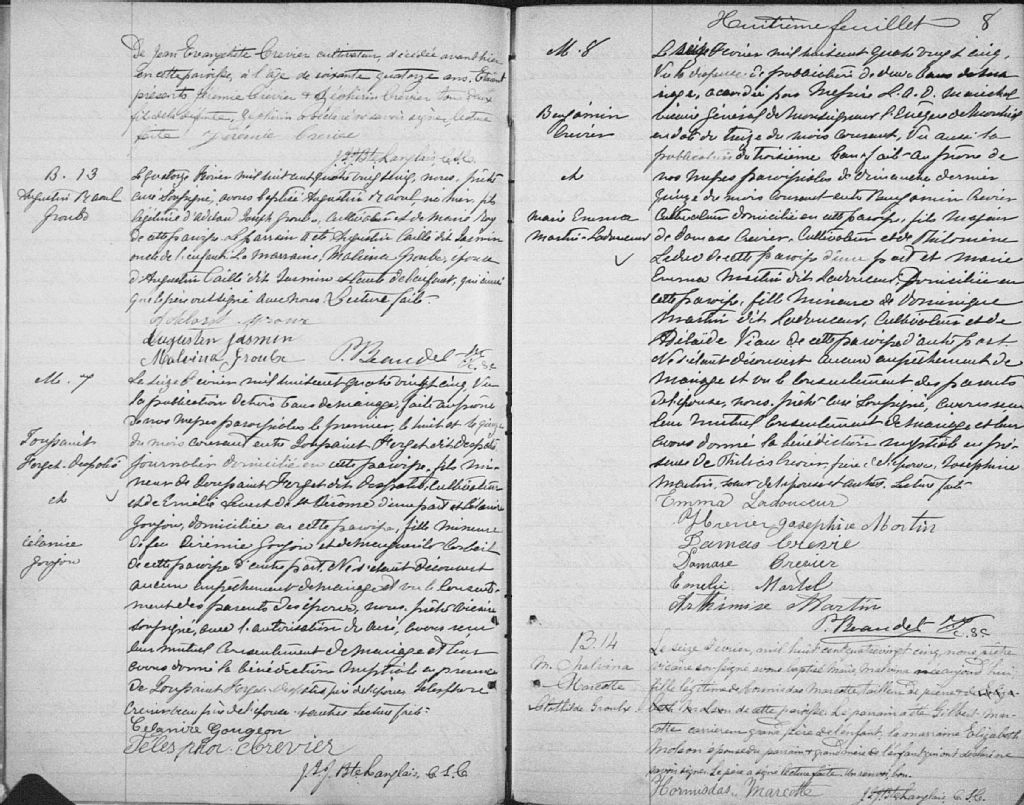 De Jean Evangeliste Crevier cultivateur, décédé avant hier
en cette paroisse, à l'age de soixante quatorze ans. Etant
présents, Crevier & Zéphirin Crevier tous deux
fils de la défunte, Zéphirin a déclaré ne savoir signer, lecture
faite
J. Bte Langlais, C.S.C.
B. 13
Augustin Raoul
Groulx
Le quatorze Février mil huit cent quatre vingt cinq, nous, prêtre
curé soussigné, avons baptisé Augustin Raoul, né hier, fils
légitime d'Adélard Joseph Groulx, cultivateur, et de Marie Roy
de cette paroisse. Le parrain a été Augustin Caillé dit Jasmin
oncle de l'enfant. La marraine, Malvina Groulx, épouse
d'Augustin Caillé dit Jasmin et tante de l'enfant, qui ainsi
que le père ont signé avec nous. Lecture faite.
Adélard Groux
Augustin Jasmin
Malvina Groulx P. Beaudet Ptre C.S.C.
M. 7
Toussaint
Forget-Despatis
et
Célanire
Goujon
Le seize Février mil huit cent quatre vingt cinq, Vu
la publication de trois bans de mariage, faite au prône
de nos messes paroissiales le premier, le huit et le quinze
du mois courant entre Toussaint Forget dit Despatis
journalier domicilié en cette paroisse, fils mi-
neur de Toussaint Forget dit Despatis, cultivateur
et de Emélie de St Jérome d'une part et Célanire
Goujon, domiciliée en cette paroisse, fille mineure
de feu Jérémie Goujon et de Marguerite Corbeil
de cette paroisse d'autre part. Ne s'étant découvert
aucun empêchement de mariage et vu le consente-
ment des parents des époux, nous, prêtre vicaire
soussigné, avec l'autorisation du curé, avons reçu
leur mutuel consentement de mariage et leur
avons donné la bénédiction nuptiale en présence
de Toussaint Forget-Despatis père de l'époux, Telesphore
Crevier beau père de l'épouse & autres. Lecture faite.
Celanire Gougeon
Telesphor Crevier
J. Bte Langlais, C.S.C.
Huitième feuillet 8
M. 8
Benjamin
Crevier
et
Marie Emma
Martin-Ladouceur
Le seize Février mil huit cent quatre vingt cinq,
Vu la dispense de publication de deux bans de ma-
riage, accordée par Messire L. A. D. Maréchal
vicaire Général de Monseigneur l'Evêque de Montréal
en date du treize du mois courant, Vu aussi la
publication du troisième ban faite au prône de
nos messes paroissiales de dimanche dernier
quinze du mois courant entre Benjamin Crevier
cultivateur domicilié en cette paroisse, fils majeur
de Damase Crevier, cultivateur et de Philomène
Leduc de cette paroisse d'une part et Marie
Emma Martin dit Ladouceur, domiciliée en
cette paroisse, fille mineure de Dominique
Martin dit Ladouceur, cultivateur et de
Adélaïde Viau de cette paroisse d'autre part.
Ne s'étant découvert aucun empêchement de
mariage et vu le consentement des parents
de l'épouse, nous, prêtre curé soussigné, avons reçu
leur mutuel consentement de mariage et leur
avons donné la bénédiction nuptiale en pré-
sence de Philias Crevier, frère de l'époux, Joséphine
Martin, sœur de l'épouse et autres. Lecture faite.
Emma Ladouceur
P. Crevier Josephine Martin
Damas Crevier
Damase Crevier
Emelie Martel
Arthimise Martin
P. Beaudet Ptre C.S.C.
B. 14
M. Malvina
Marcotte
Clothilde Groulx
Le seize Février, mil huit cent quatre vingt cinq, nous prêtre
vicaire soussigné avons baptisé Marie, Malvina née aujourd'hui,
fille légitime de Hormisdas Marcotte tailleur de pierre & de
de cette paroisse. Le parrain a été Gilbert Mar-
cotte carrier grand père de l'enfant, la marraine Elizabeth
épouse du parrain & grand'mère de l'enfant qui ont déclaré ne
savoir signer. Le père a signé lecture faite. Un renvoi bon.
Hormisdas Marcotte J. Bte Langlais, C.S.C.